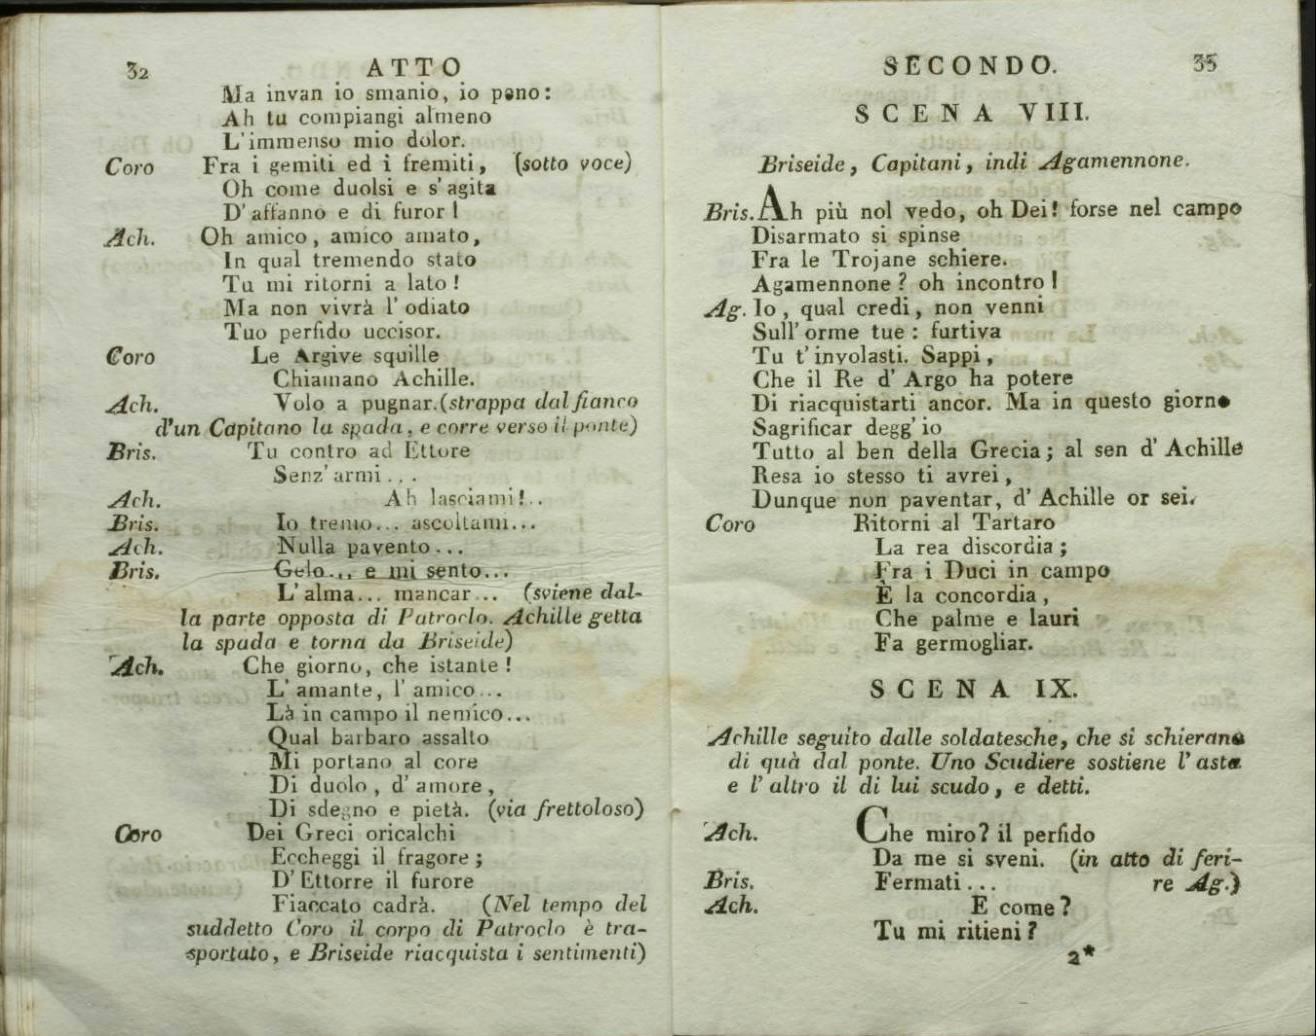 32 ATTO
Ma invan io smanio, io peno:
Ah tu compiangi almeno
L'immenso mio dolor.
Coro Fra i gemiti ed i fremiti, (sotto voce)
Oh come duolsi e s'agita
D'affanno e di furor!
Ach. Oh amico, amico amato,
In qual tremendo stato
Tu mi ritorni a lato!
Ma non vivrà l'odiato
Tuo perfido uccisor.
Coro Le Argive squille
Chiamano Achille.
Ach. Volo a pugnar. (strappa dal fianco
d'un Capitano la spada, e corre verso il ponte)
Bris. Tu contro ad Ettore
Senz'armi...
Ach. Ah lasciami!..
Bris. Io tremo... ascoltami...
Ach. Nulla pavento...
Bris. Gelo... e mi sento...
L'alma... mancar... (sviene dal-
la parte opposta di Patroclo. Achille getta
la spada e torna da Briseide)
Ach. Che giorno, che istante!
L'amante, l'amico...
Là in campo il nemico...
Qual barbaro assalto
Mi portano al core
Di duolo, d'amore,
Di sdegno e pietà. (via frettoloso)
Coro Dei Greci oricalchi
Eccheggi il fragore;
D'Ettorre il furore
Fiaccato cadrà. (Nel tempo del
suddetto Coro il corpo di Patroclo è tra-
sportato, e Briseide riacquista i sentimenti)
SECONDO. 35
SCENA VIII.
Briseide, Capitani, indi Agamennone.
Bris. Ah più nol vedo, oh Dei! forse nel campo
Disarmato si spinse
Fra le Trojane schiere.
Agamennone? oh incontro!
Ag. Io, qual credi, non venni
Sull'orme tue: furtiva
Tu t'involasti. Sappi,
Che il Re d'Argo ha potere
Di riacquistarti ancor. Ma in questo giorno
Sagrificar degg'io
Tutto al ben della Grecia; al sen d'Achille
Resa io stesso ti avrei,
Dunque non paventar, d'Achille or sei.
Coro Ritorni al Tartaro
La rea discordia;
Fra i Duci in campo
È la concordia,
Che palme e lauri
Fa germogliar.
SCENA IX.
Achille seguito dalle soldatesche, che si schierano
di quà dal ponte. Uno Scudiere sostiene l'asta
e l'altro il di lui scudo, e detti.
Ach. Che miro? il perfido
Da me si sveni. (in atto di feri-
Bris. Fermati... re Ag.)
Ach. E come?
Tu mi ritieni?
2*